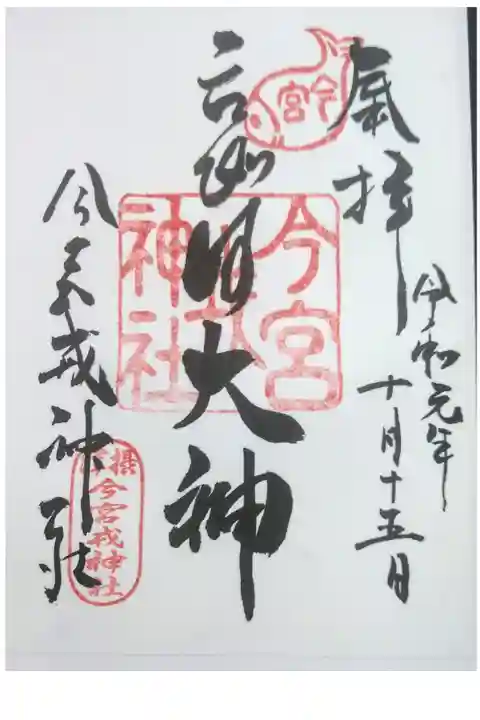 奉拝
令和元年十月十五日
今宮
大神
今宮戎神社
今宮戎神社
摂津
今宮戎神社